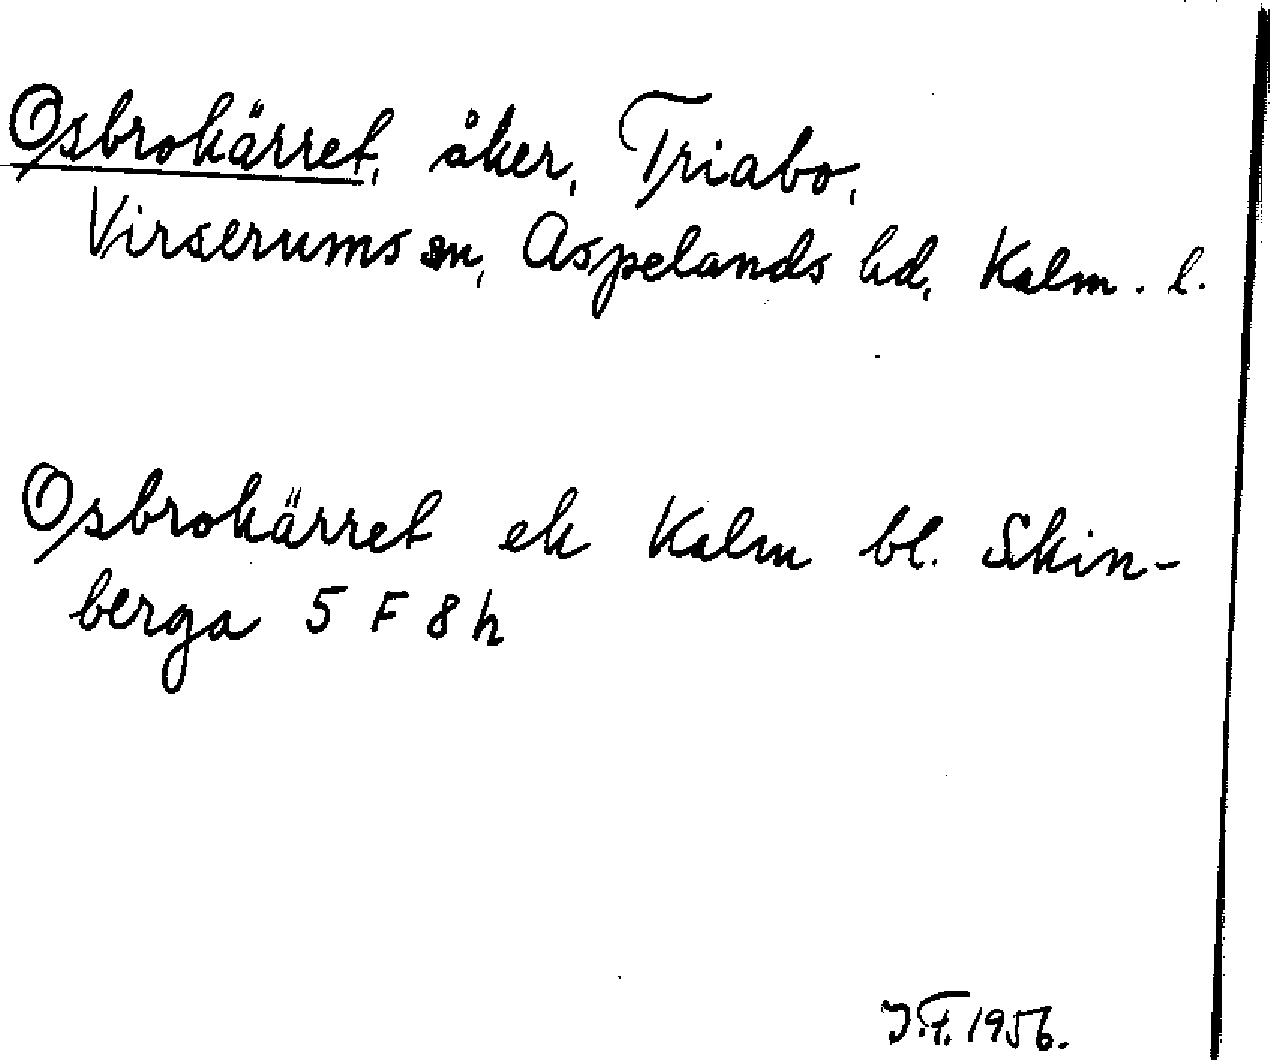 Osbrokärret, åker, Triabo,
Virserums sn, Aspelands hd, Kalm. l.
Osbrokärret ek Kalm bl. Skin-
berga 5 F 8 h
J.F. 1956.